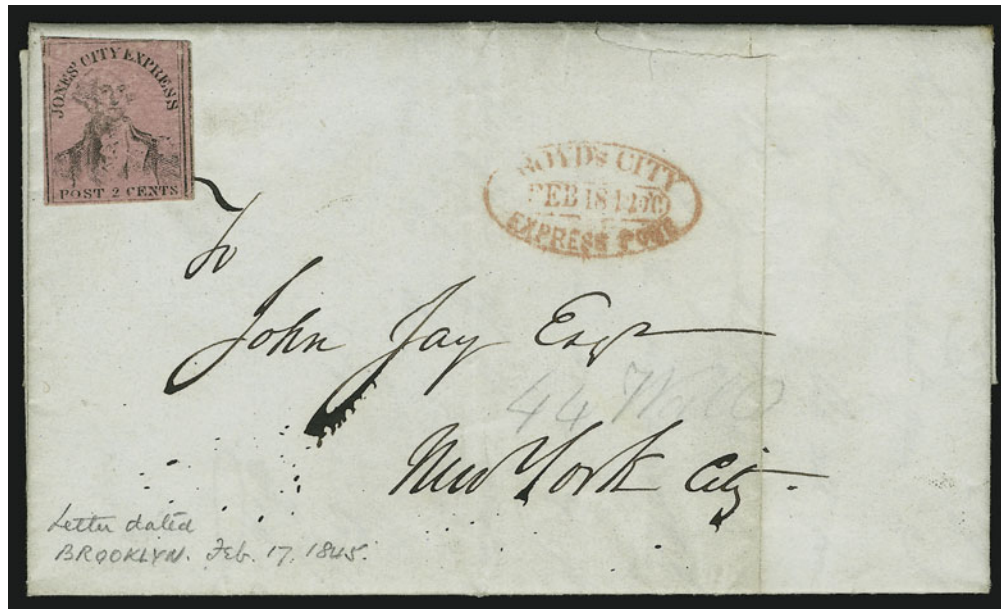 JONES' CITY EXPRESS
POST 2 CENTS
BOYD'S CITY
FEB 18
EXPRESS POST
To
John Jay Esqr
44 Wall
New York City.
Letter dated
BROOKLYN. Feb. 17. 1845.